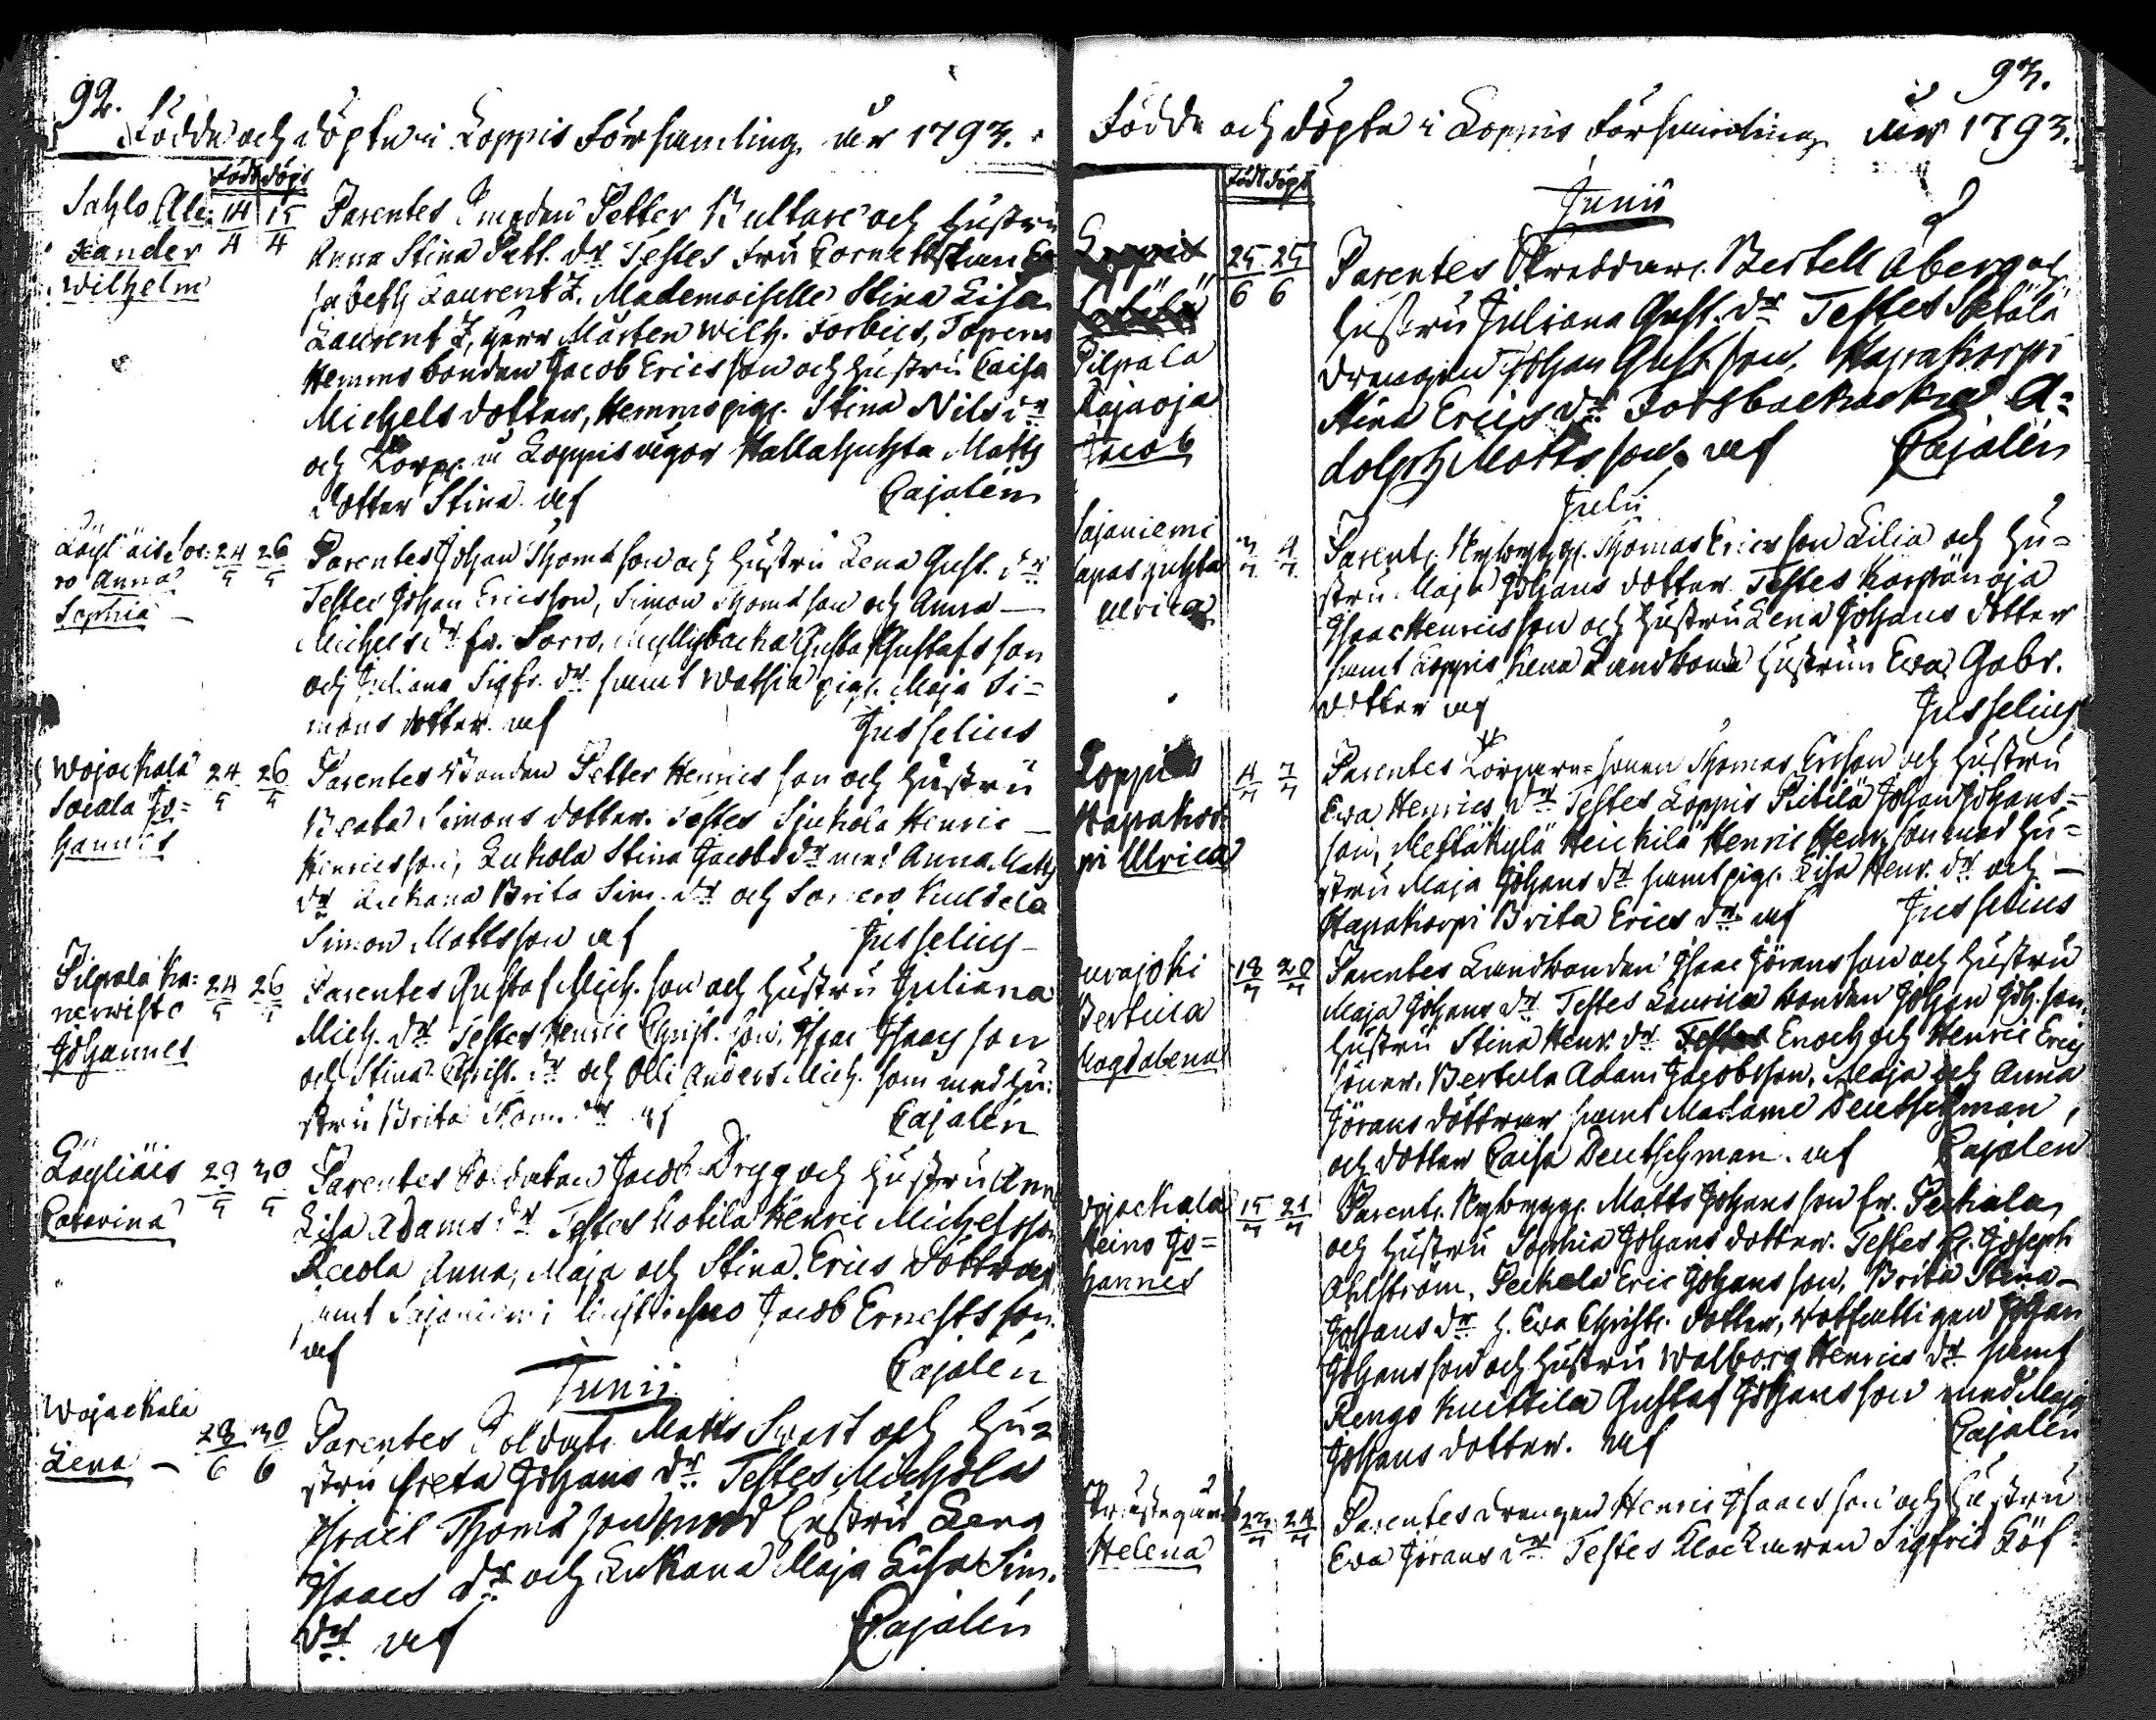 92.
Födde och döpte i Loppis Församling år 1793.
Födt döpt
Sahlo Ale:
xander
Wilhelm
14/4 15/4
Parentes Smeden Petter Bultare och hustru
Anna Stina Pett. dr Testes Fru Cornettskan
sabeth Laurent Z. Mademoiselle Stina Lisa
Laurent Z, Herr Mårten Wilh. Forbus, Topeno
Hemms bonden Jacob Ericsson och hustru Caisa
Michels dotter, Hemms pig. Stina Nils dr
och Loppis Kallahuhta Matts
dotter Stina. af Cajalén
Löyliäis Sor:
ro Anna
Sophia
24/5 26/5
Parentes Johan Thomasson och hustru Lena Gust. dr
Testes Johan Ericsson, Simon Thomasson och Anna
Michels dr fr. Sorro, Myllybacka Gusta Gustafsson
och Juliana Sigfr. dr samt Watsia pig. Maja Si=
mons dotter. af Jusselius
Wojackala
Socala Jo=
hannes
24/5 26/5
Parentes Bonden Petter Henricsson och hustru
Beata Simons dotter. Testes Sjukola Henric
Henricsson, Lukola Stina Jacobs dr med Anna Matts
dr Lukana Brita Sim. dr och Somero Kultela
Simon Mattsson af Jusselius
Pilpala Ka:
nerwisto
Johannes
24/5 26/5
Parentes Gustaf Mich. son och hustru Juliana
Mich. dr Testes Henric Christ. son, Isaac Isaacsson
och Stina Christ. dr och Olli Anders Mich. son med hu:
stru Brita Thom. dr af Cajalén
Löyliäis
Catarina
29/5 30/5
Parentes Soldaten Jacob Drygg och hustru Anna
Lisa Adams dr Testes Kotila Henric Michelsson
Räcola Anna, Maja och Stina Erics döttrar,
samt Sajaniemi Jacob Ernestsson.
af Cajalén
Junii
Wojackala
Lena
28/6 30/6
Parentes Soldat. Matts Swart och hu=
stru Greta Johans dr Testes Michola
Israel Thomasson med hustru Lena
Isaacs dr och Lukana Maja Lisa Sim.
dr af Cajalén
93.
Födde och döpte i Loppis Församling år 1793.
Födt döpt
Junii
Pilpala
Rajaoja
Jacob
25/6 25/6
Parentes Skreddare Bertell Åberg och
hustru Juliana Gust. dr Testes Sletälä
drengen Johan Gustsson, Hapakorpi
Stina Erics dr Forsbacka A=
dolph Mattsson. af Cajalén
Julii
Sajaniemi
huhta
Ulrica
3/7 4/7
Parent. Nybygg. Thomas Ericsson Lilia och hu=
stru Maja Johans dotter Testes Korpänoja
Isaac Henricsson och hustru Lena Johans dotter
samt Loppis Landbonde hustrun Ewa Gabr.
dotter af Jusselius
Loppis
Hapakor
pi Ulrica
4/7 7/7
Parentes Thomas Ericson och hustru
Ewa Henrics dr Testes Loppis Pietilä Johan Johans=
son, Mestäkylä Heickilä Henric Henr. son med hu=
stru Maja Johans dr samt pig. Lisa Henr. dr och
Hapakorpi Brita Erics dr af Jusselius
urajoki
Bertula
Magdalena
18/7 20/7
Parentes Landbonden Isaac Göransson och hustru
Maja Johans dr Testes Laurila bonden Johan Joh. son,
hustru Stina Henr. dr Enoch och Henric Erics
söner, Bertula Adam Jacobsson, Maja och Anna
Görans döttrar samt Madame Deutschman,
och dotter Caisa Deutschman. af Cajalén
Wojackala
Heino Jo=
hannes
15/7 21/7
Parent. Nybygg. Matts Johansson fr. Peckala
och hustru Sophia Johans dotter. Testes Hr. Joseph
Ahlström, Peckala Eric Johansson, Brita Stina
Johans dr h. Ewa Christ. dotter, Johan
Johansson och hustru Walborg Henrics dr samt
Rengo Kuittila Gustaf Johansson med Maja
Johans dotter. af Cajalén
Helena
23/7 24/7
Parentes drengen Henric Isaacsson och hustru
Ewa Görans dr Testes Klockaren Sigfrid Löf=